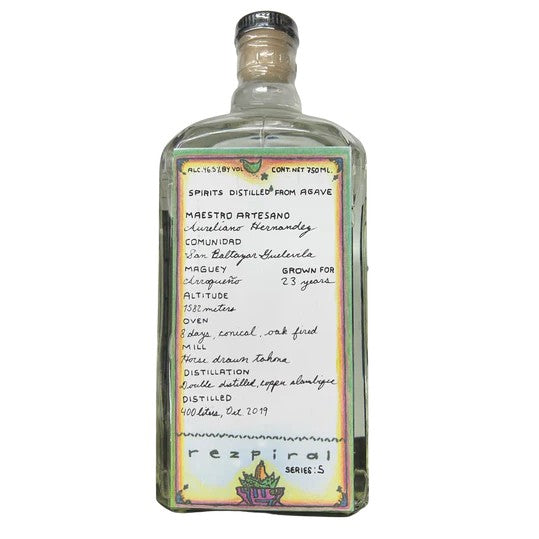 ALC. 46.5% BY VOL CONT. NET 750 ML.
SPIRITS DISTILLED FROM AGAVE
MAESTRO ARTESANO
Aureliano Hernandez
COMUNIDAD
San Baltazar Guelavila
MAGUEY GROWN FOR
Arroqueño 23 years
ALTITUDE
1582 meters
OVEN
8 days, conical, oak fired
MILL
Horse drawn tahona
DISTILLATION
Double distilled, copper alambique
DISTILLED
400 liters, Oct 2019
rezpiral
SERIES: 5